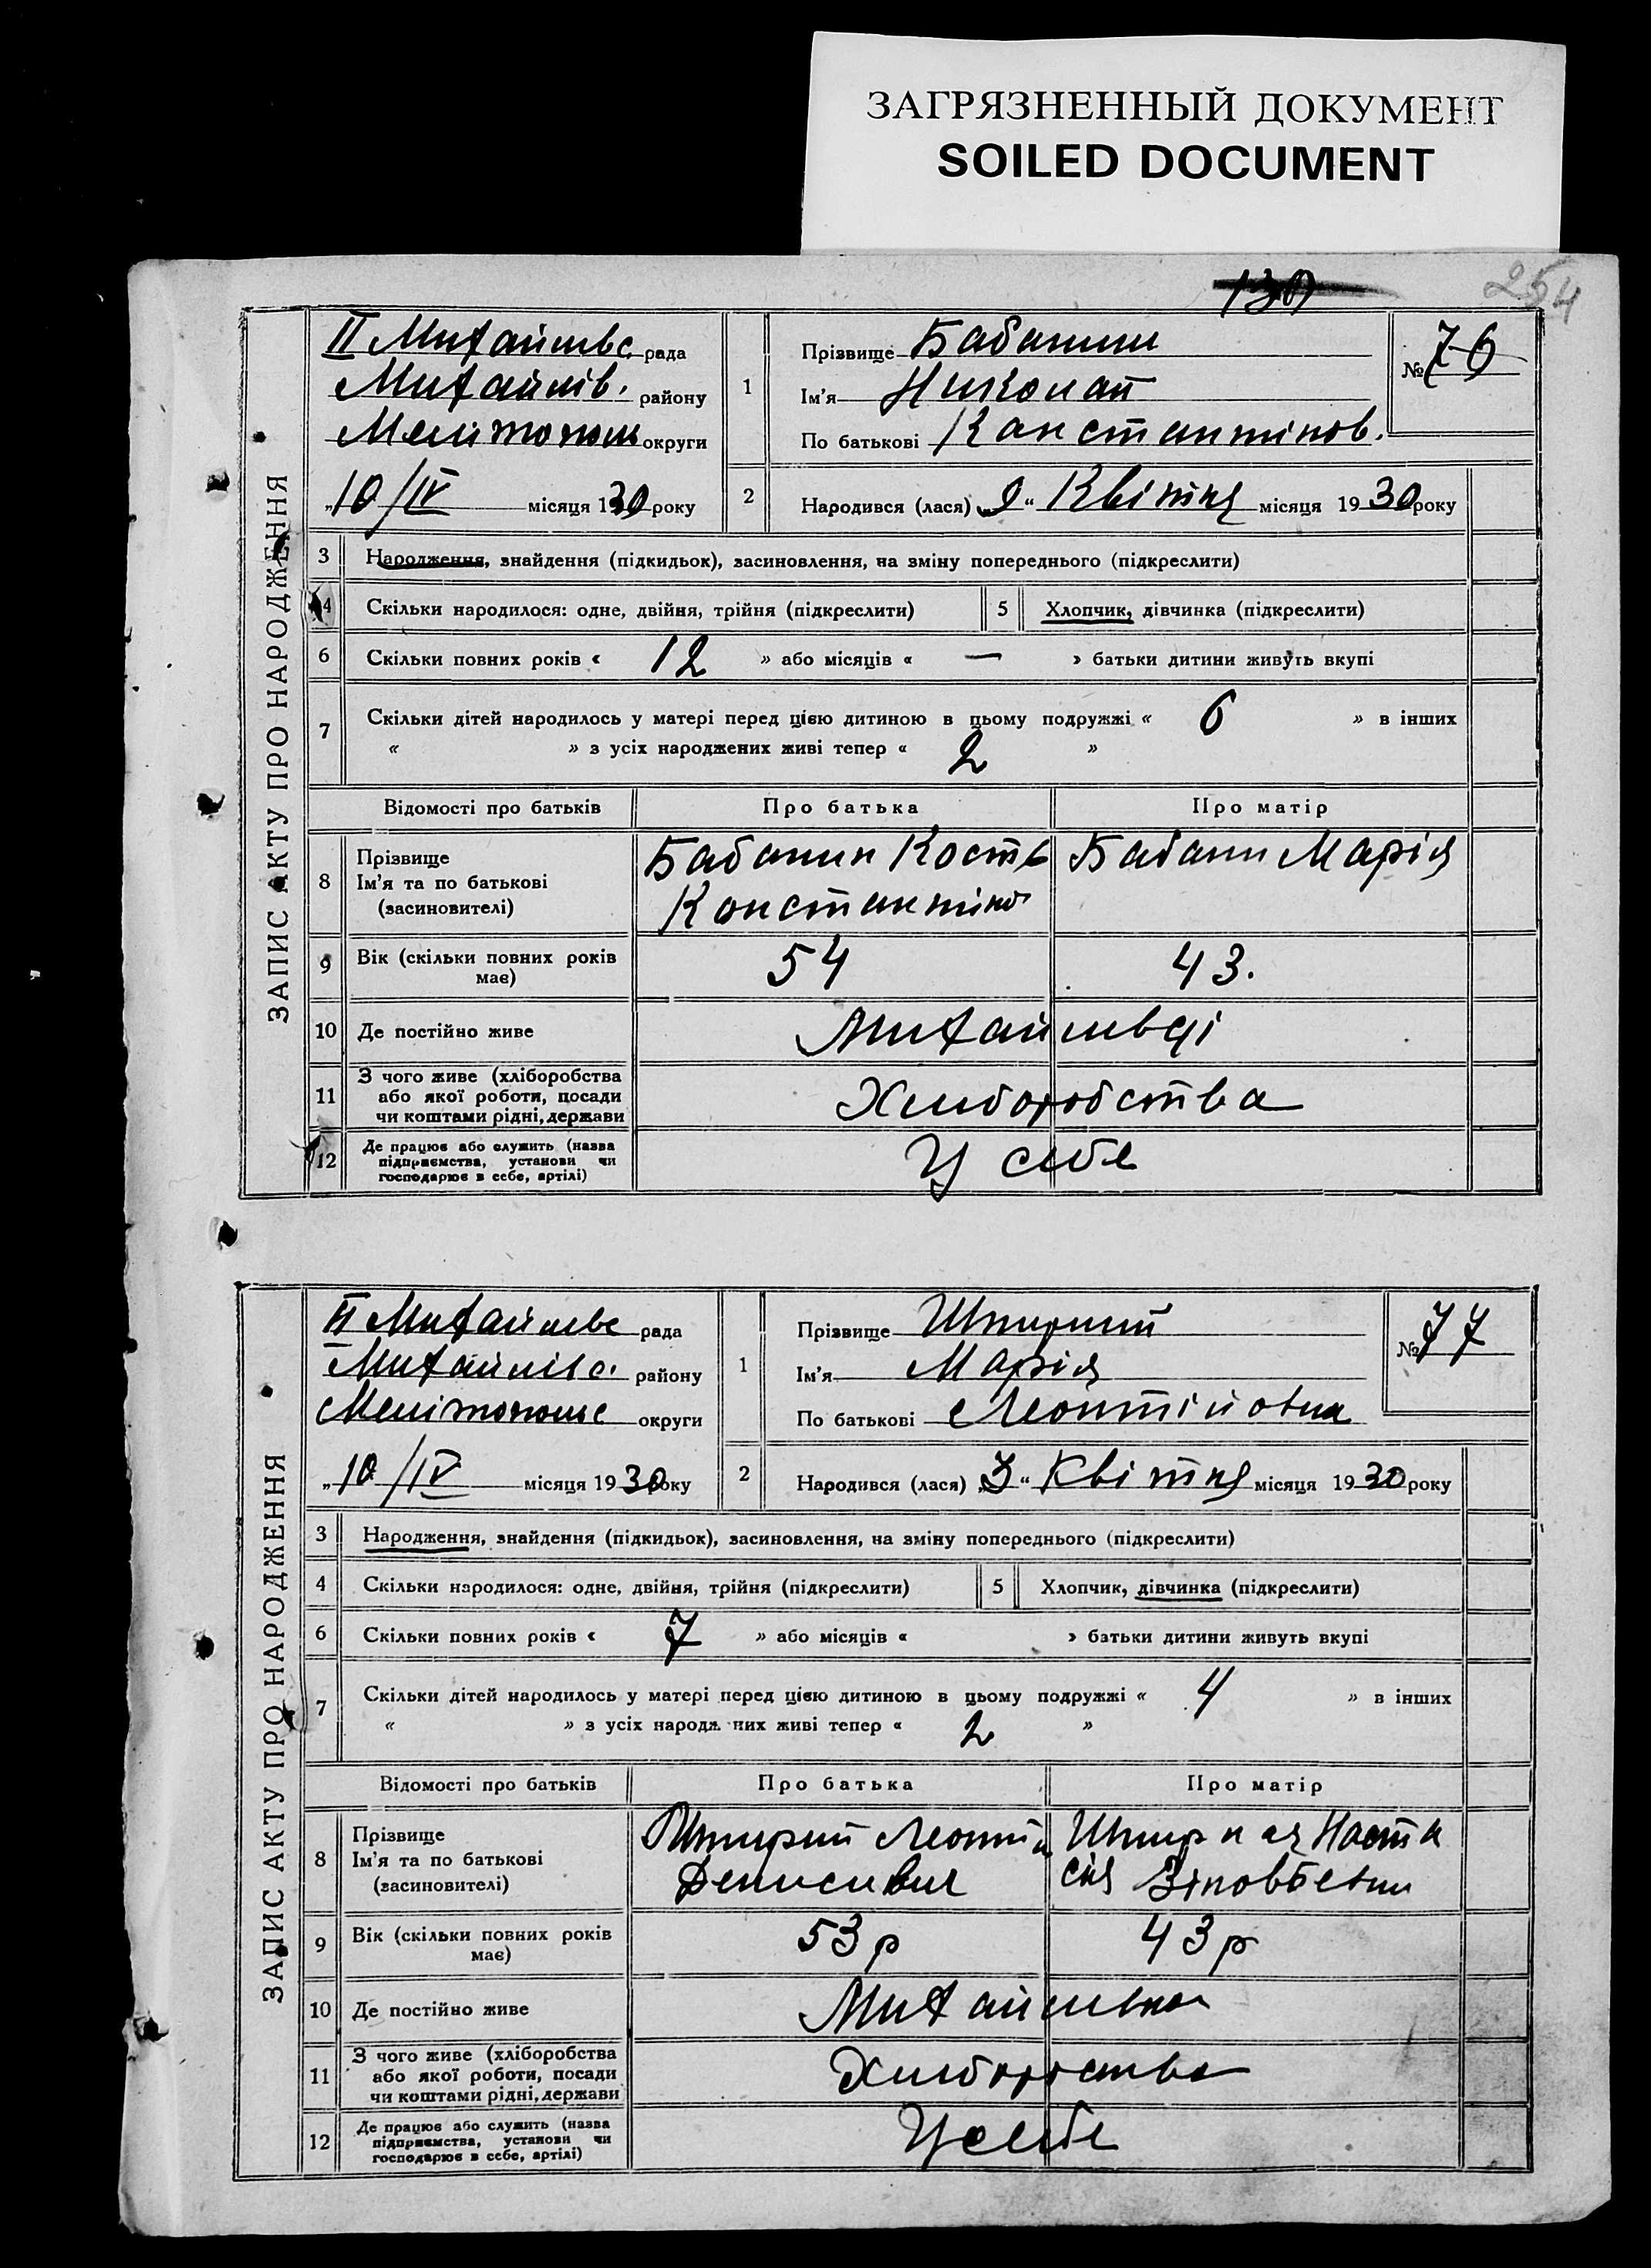 ЗАГРЯЗНЕННЫЙ ДОКУМЕНТ
SOILED DOCUMENT
130
254
ЗАПИС АКТУ ПРО НАРОДЖЕННЯ
ІІ Михайлівс. рада
Михайлів. району
Мелітополь округи
„10/IV місяця 1930 року
1
Прізвище Бабанин
Ім'я Николай
По батькові Константинов.
№ 76
2
Народився (лася) „9“ Квітня місяця 1930 року
3 Народження, знайдення (підкидьок), засиновлення, на зміну попереднього (підкреслити)
4 Скільки народилося: одне, двійня, трійня (підкреслити) 5 Хлопчик, дівчинка (підкреслити)
6 Скільки повних років « 12 » або місяців « — » батьки дитини живуть вкупі
7 Скільки дітей народилось у матері перед цією дитиною в цьому подружжі « 6 » в інших
« » з усіх народжених живі тепер « 2 »
Відомості про батьків Про батька Про матір
8 Прізвище
Ім'я та по батькові
(засиновителі)
Бабанин Кость
Константино
Бабанин Марія
9 Вік (скільки повних років
має)
54 43.
10 Де постійно живе Михайлівці
11 З чого живе (хліборобства
або якої роботи, посади
чи коштами рідні, держави
Хлиборобства
12 Де працює або служить (назва
підприємства, установи чи
господарює в себе, артілі)
У себе
ЗАПИС АКТУ ПРО НАРОДЖЕННЯ
ІІ Михайлівс рада
Михайлівс. району
Мелітопольс округи
„10/IV місяця 1930 року
1
Прізвище
Ім'я Марія
По батькові Леонтійовна
№ 77
2
Народився (лася) „3“ Квітня місяця 1930 року
3 Народження, знайдення (підкидьок), засиновлення, на зміну попереднього (підкреслити)
4 Скільки народилося: одне, двійня, трійня (підкреслити) 5 Хлопчик, дівчинка (підкреслити)
6 Скільки повних років « 7 » або місяців « » батьки дитини живуть вкупі
7 Скільки дітей народилось у матері перед цією дитиною в цьому подружжі « 4 » в інших
« » з усіх народж них живі тепер « 2 »
Відомості про батьків Про батька Про матір
8 Прізвище
Ім'я та по батькові
(засиновителі)
Леонтій
Денисович
Наста
сія Зіновъевн
9 Вік (скільки повних років
має)
53 р 43 р
10 Де постійно живе Михайлівка
11 З чого живе (хліборобства
або якої роботи, посади
чи коштами рідні, держави
Хлиборства
12 Де працює або служить (назва
підприємства, установи чи
господарює в себе, артілі)
У себе